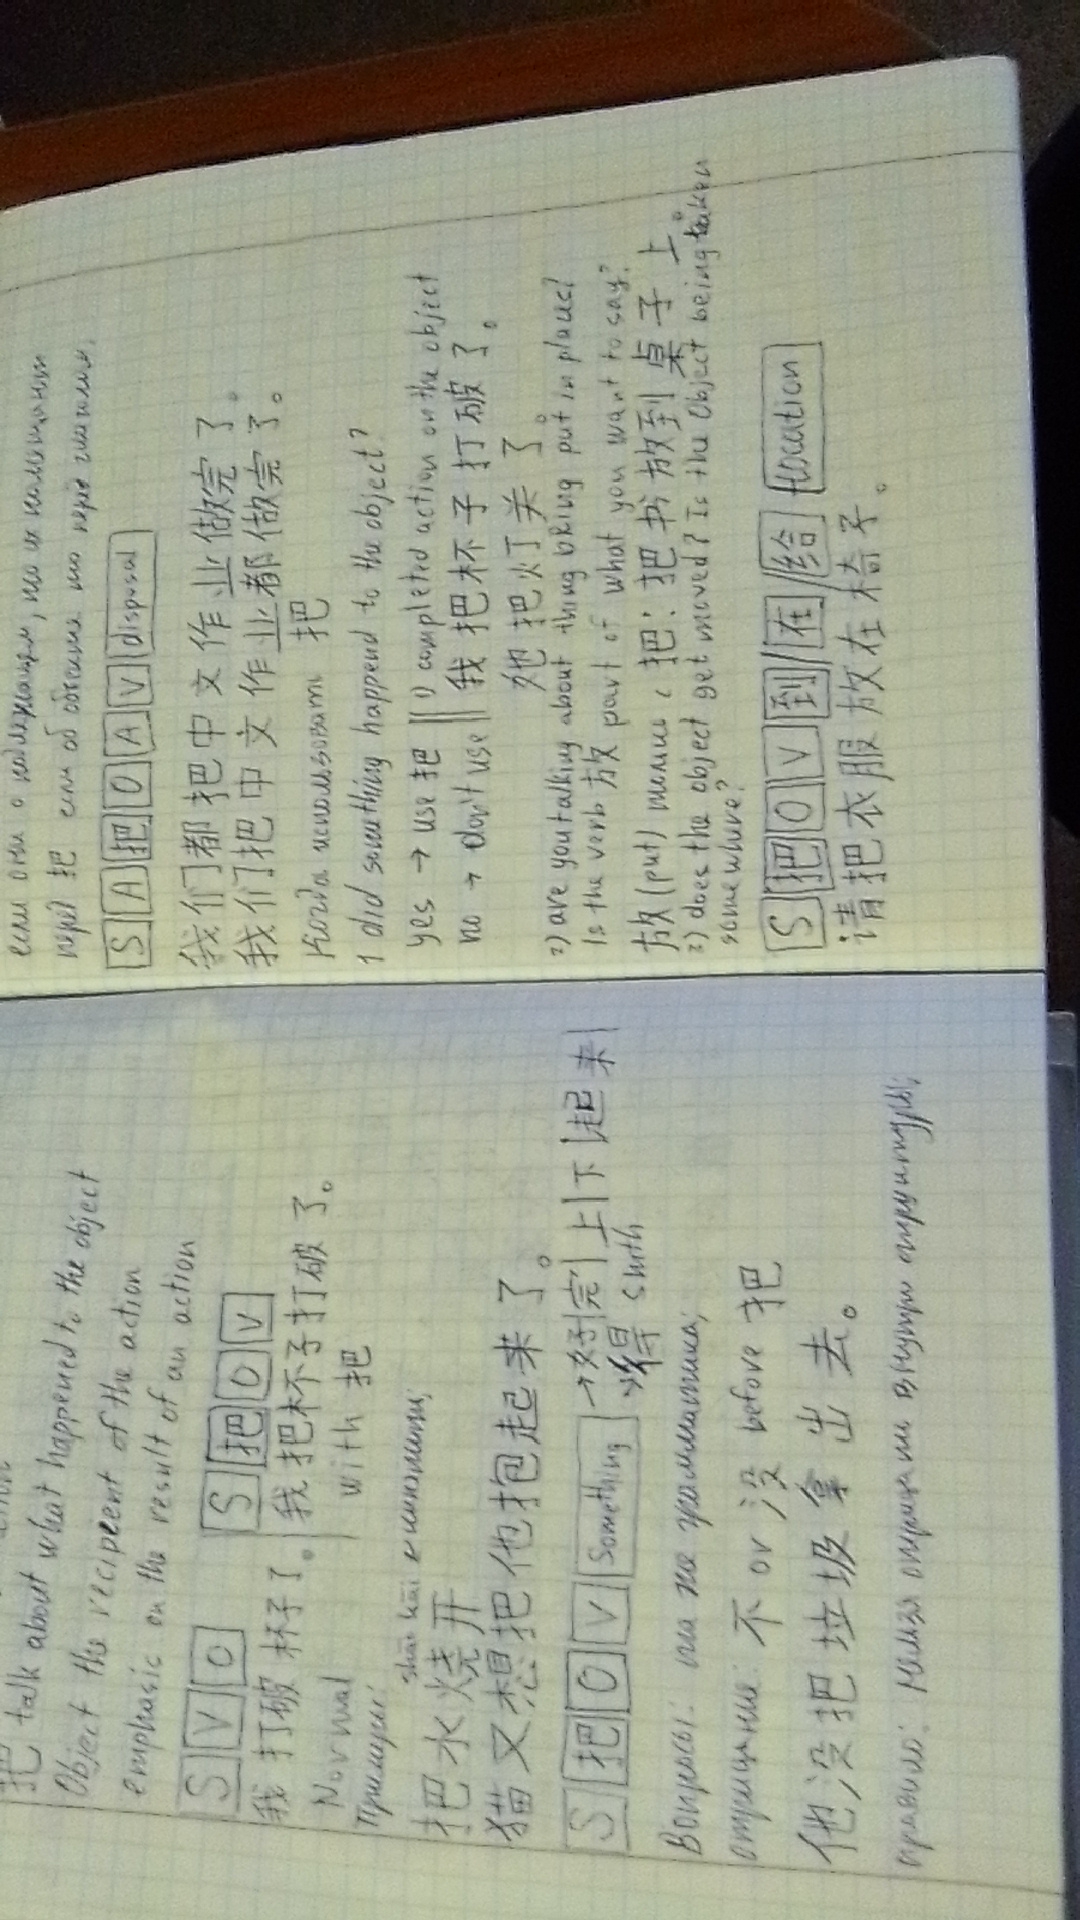 把 talk about what happened to the object
Object the recipient of the action
emphasic on the result of an action
S V O S 把 O V
我 打破 杯子了。 我 把杯子打破 了。
Normal with 把
Примеры: shāo kāi кипятить;
把 水 烧 开
猫 又 想 把 他 抱 起 来 了。
S 把 O V Something → 好|完|上|下|起来|
→ 得 smth
Вопросы: та же грамматика;
отрицание: 不 or 没 before 把
他 没 把 垃 圾 拿 出 去。
правило: Нельзя отрицать внутри структуры;
если они о
перед 把 если об объекте то перед глаголом.
S A 把 O A V disposal
我们都把中文作业做完了。
我们把中文作业都做完了。
Когда использовать 把
1 did something happend to the object?
yes → use 把 || 1) completed action on the object
no → don't use || 我 把 杯 子 打 破 了。
她 把 灯 关 了。
2) are you talking about thing being put in place?
Is the verb 放 part of what you want to say?
放 (put) 把: 把 书 放 到 桌 子 上。
3) does the object get moved? Is the Object being taken
somewhere?
S 把 O V 到/在/给 location
请 把 衣 服 放 在 椅 子。